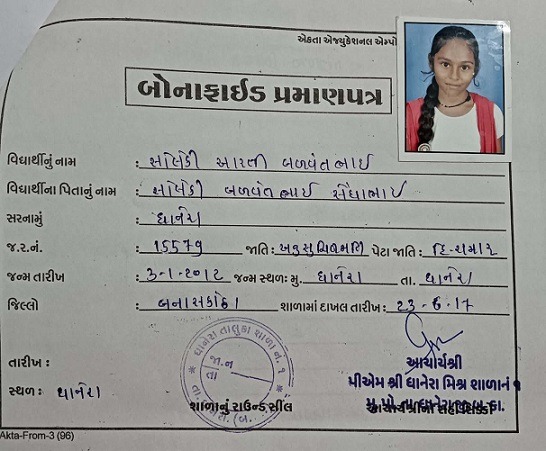 એકતા એજ્યુકેશનલ એમ્પો
બોનાફાઈડ પ્રમાણપત્ર
વિદ્યાર્થીનું નામ : સોલંકી આરતી બળવંતભાઈ
વિદ્યાર્થીના પિતાનું નામ : સોલંકી બળવંતભાઈ સેંધાભાઈ
સરનામું : ધાનેરા
જ.ર.નં. : 15579 જાતિ : અનુસુચિતજાતિ પેટા જાતિ : હિ-ચમાર
જન્મ તારીખ : 3-1-2012 જન્મ સ્થળઃ મુ. ધાનેરા તા. ધાનેરા
જિલ્લો : બનાસકાંઠા શાળામાં દાખલ તારીખ : 23-6-17
ધાનેરા તાલુકા શાળા નં. ૧
જા.ન
તા
તારીખ :
આચાર્યશ્રી
સ્થળ : ધાનેરા
પીએમ શ્રી ધાનેરા મિશ્ર શાળાનં ૧
શાળાનું રાઉન્ડ સીલ
Akta-From-3 (96)